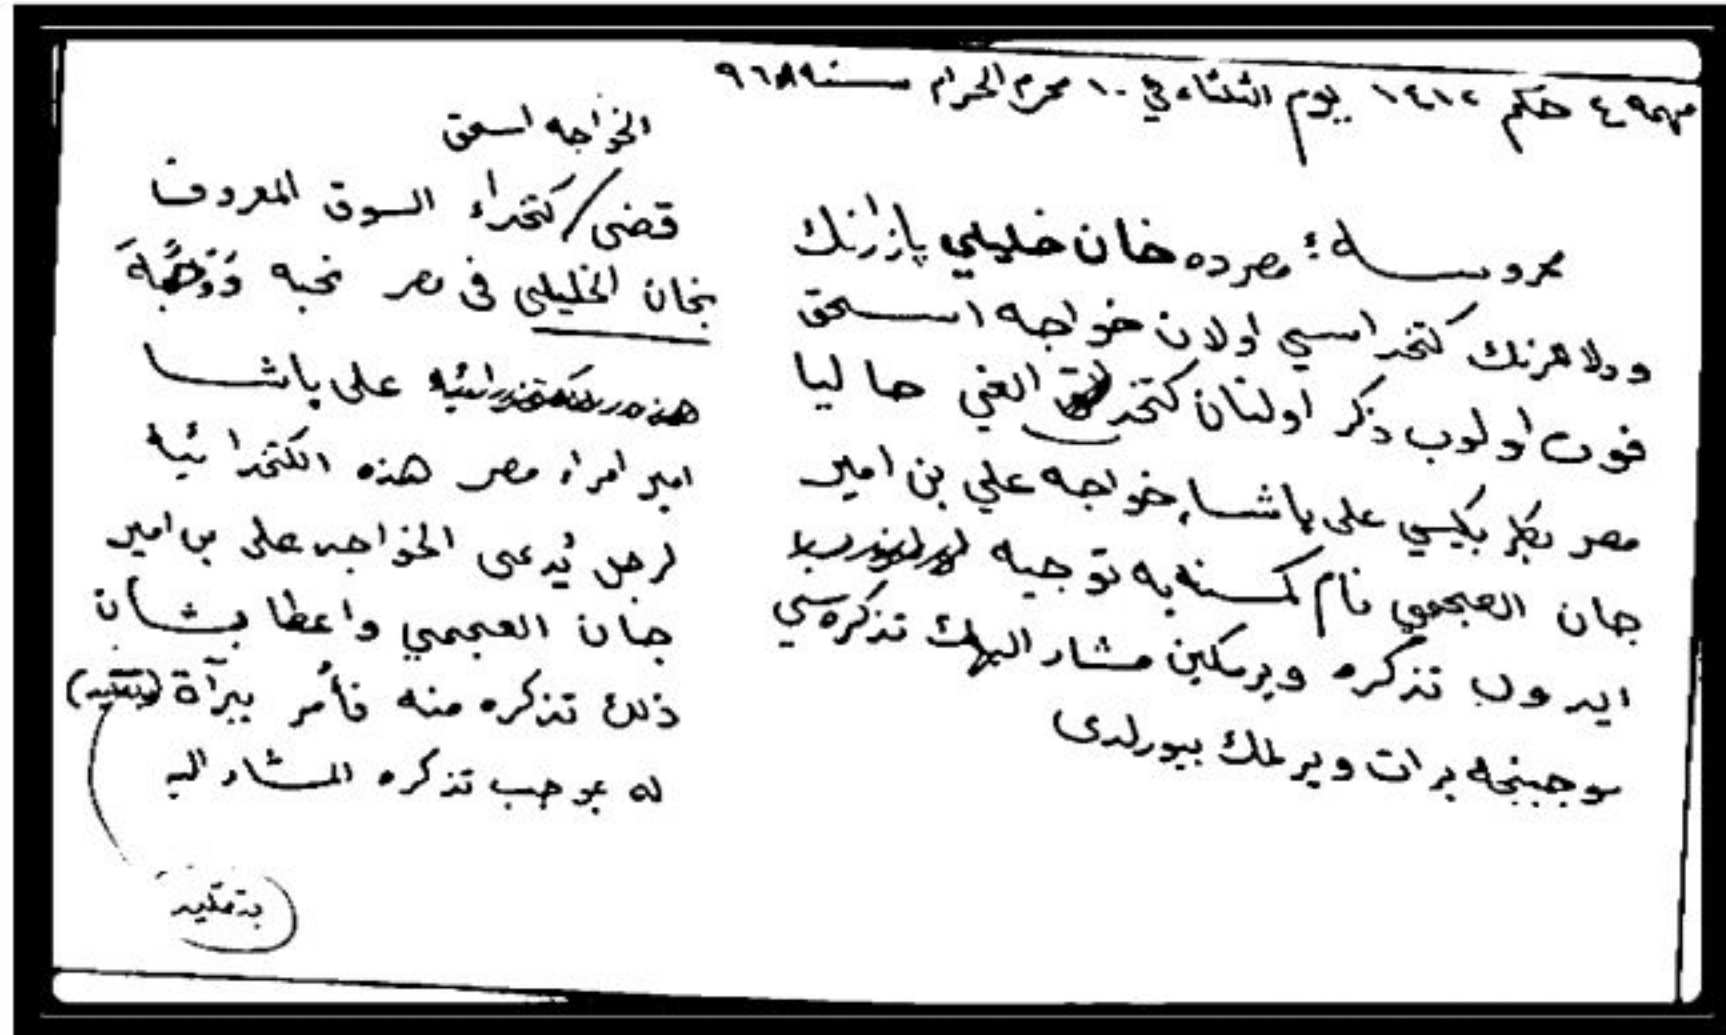 مهمه ٤ حكم ١٤١٢ يوم الثلثاء في ١٠ محرم الحرام سنة ٩٦٨
محروسه؛ مصرده خان خليلي پازارنك
ودلاللرنك كتخداسي اولان خواجه اسحق
فوت اولوب ذكر اولنان كتخدالق الغي حاليا
مصر بكلربكيسي علي پاشا، خواجه علي بن امير
جان العجمي نام كمسنه يه توجيه
ايدوب تذكره ويرمكين مشار اليهك تذكره سي
موجبنجه برات ويرلمك بيورلدى
الخواجه اسحق
قضى / كتخداء السوق المعروف
بخان الخليلي في مصر نحبه وَوَجَّهَ
هذه علي باشا
امير امراء مصر هذه الكتخدائية
لرجل يُدعى الخواجه علي بن امير
جان العجمي واعطا بشأن
ذلك تذكره منه فأمر ببرآة
له بموجب تذكره المشار اليه